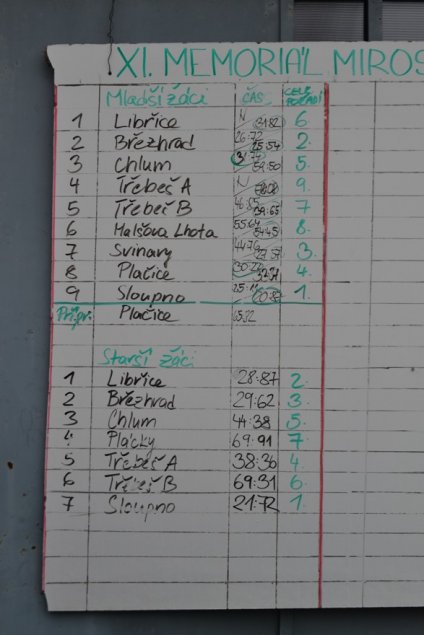 XI. MEMORIÁL MIROS
Mladší žáci ČAS CELK. POŘADÍ
1 Libřice N 6.
2 Břežhrad 26:72 25:54 2.
3 Chlum 59:50 5.
4 Třebeš A N 9.
5 Třebeš B 46:85 7
6 Malšova Lhota 55:64 8.
7 Svinary 44:76 3.
8 Plačice 4.
9 Sloupno 1.
Příp. Plačice 65:22
Starší žáci
1 Libřice 28:87 2.
2 Břežhrad 29:62 3.
3 Chlum 44:38 5.
4 Plácky 69:91 7.
5 Třebeš A 38:36 4
6 Třebeš B 69:31 6.
7 Sloupno 21:72 1.